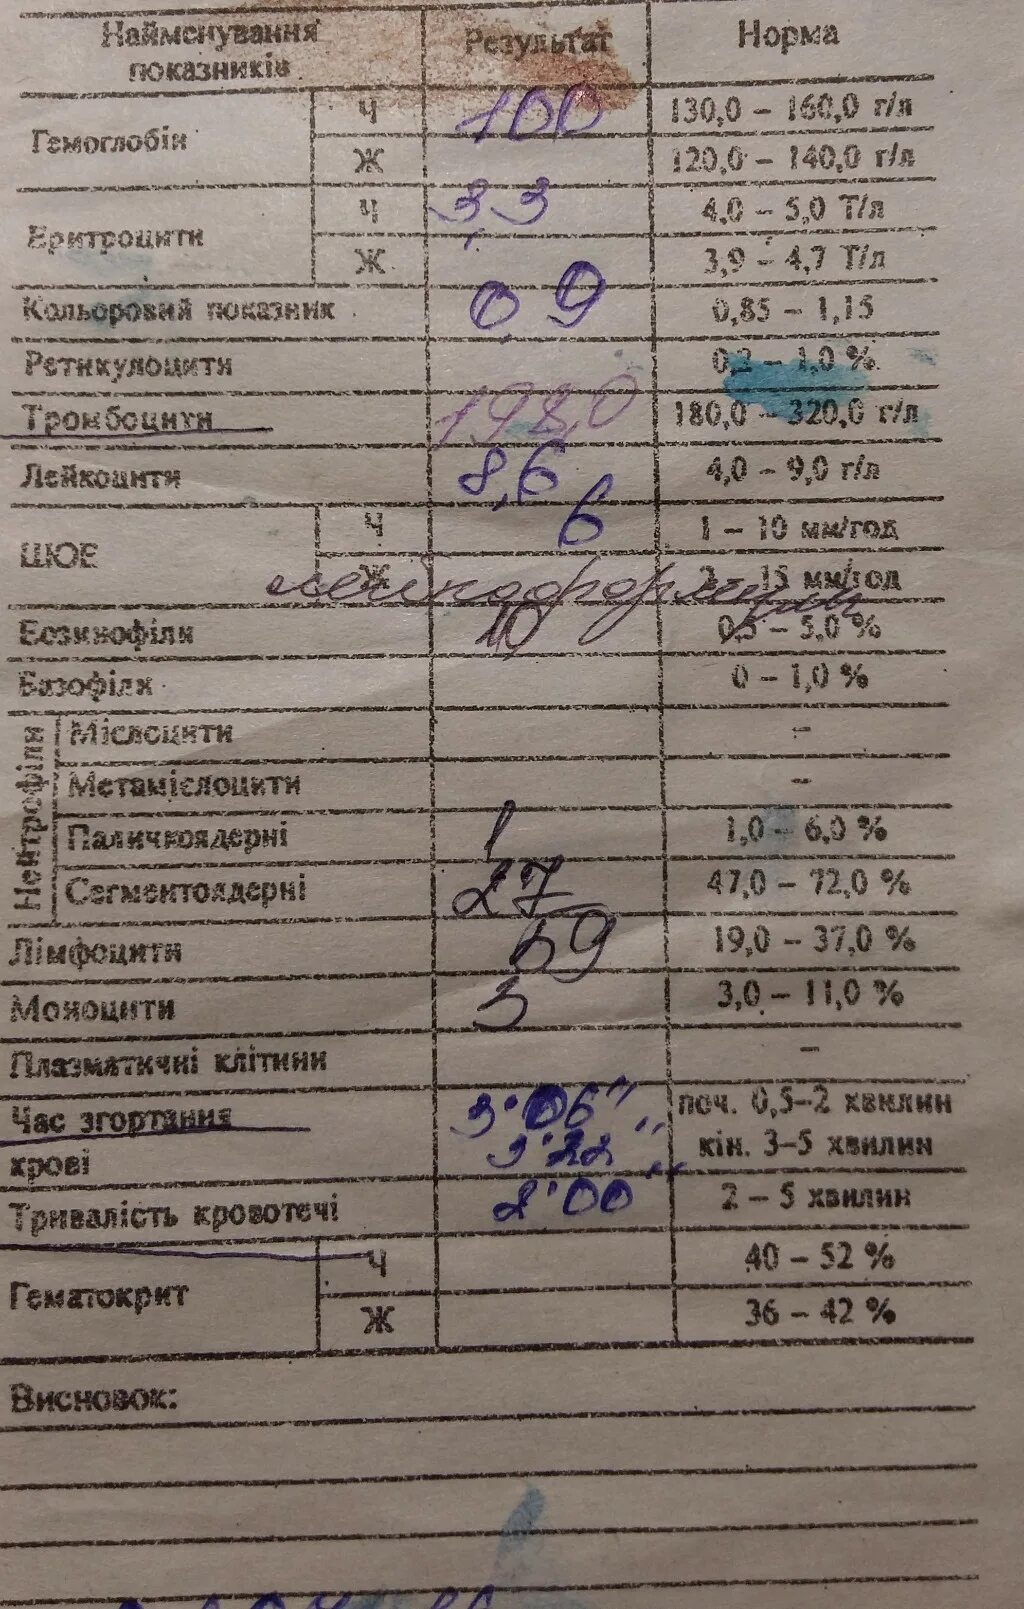 Найменування показників Результат Норма
Гемоглобін Ч 100 130,0 – 160,0 г/л
Ж 120,0 – 140,0 г/л
Еритроцити Ч 3,3 4,0 – 5,0 Т/л
Ж 3,9 – 4,7 Т/л
Кольоровий показник 0,9 0,85 – 1,15
Ретикулоцити 0,2 – 1,0 %
Тромбоцити 198,0 180,0 – 320,0 г/л
Лейкоцити 8,6 4,0 – 9,0 г/л
ШОЕ Ч 6 1 – 10 мм/год
Ж 2 – 15 мм/год
лейкоформула
Еозинофіли 10 0,5 – 5,0 %
Базофіли 0 – 1,0 %
Нейтрофіли
Мієлоцити –
Метамієлоцити –
Паличкоядерні 1 1,0 – 6,0 %
Сегментоядерні 27 47,0 – 72,0 %
Лімфоцити 59 19,0 – 37,0 %
Моноцити 3 3,0 – 11,0 %
Плазматичні клітини –
Час згортання 3'06" поч. 0,5–2 хвилин
крові 3'22" кін. 3–5 хвилин
Тривалість кровотечі 2'00" 2 – 5 хвилин
Гематокрит Ч 40 – 52 %
Ж 36 – 42 %
Висновок: